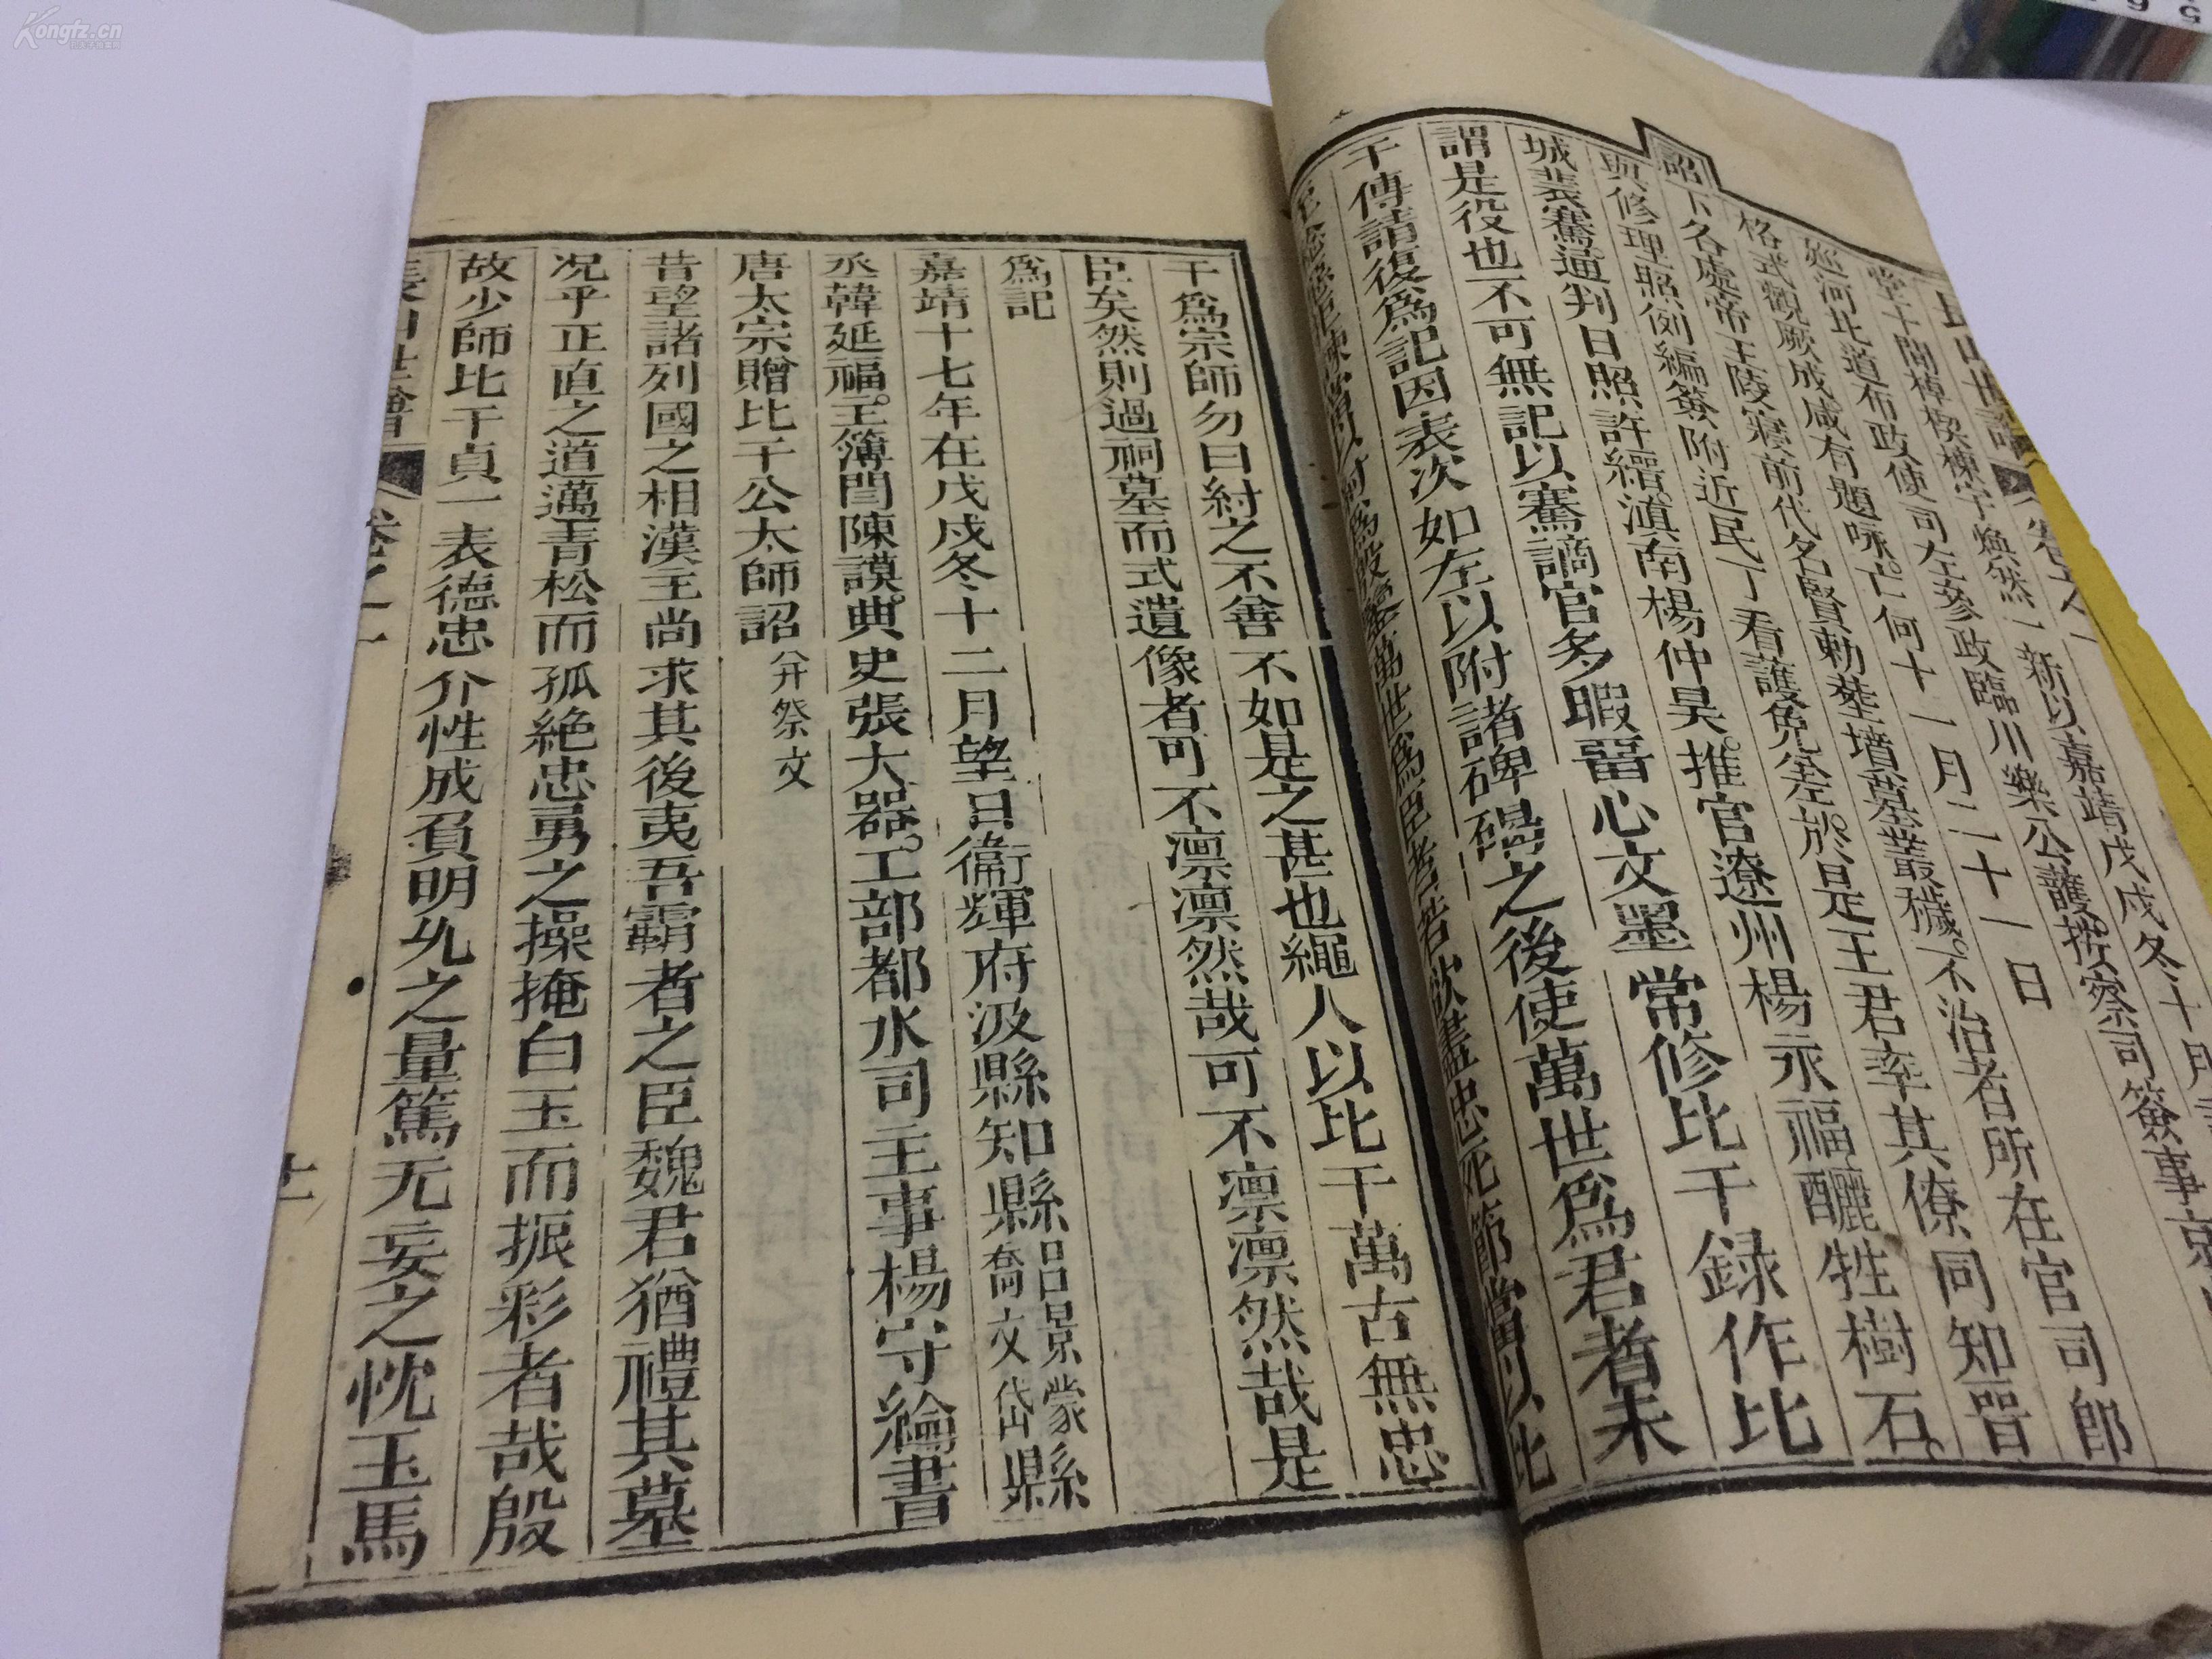 Kongfz.cn
詔
堂十閒棹楔棟宇煥然一新以嘉靖戊戌冬十
廵河北道布政使司左參政臨川樂公護按察司簽事
格式觀厥成咸有題咏亡何十一月二十一日
下各處帝王陵寢前代名賢勅塟墳墓叢穢不治者所在官司郎
與修理照例編簽附近民丁看護免差於是王君率其僚同知晉
城裴騫通判日照許縉滇南楊仲昊推官遼州楊永福釃牲樹石
謂是役也不可無記以騫謫官多暇畱心文墨常修比干録作比
干傳請復爲記因表次如左以附諸碑碣之後使萬世爲君者未
萬世爲臣者若欲盡忠死節當以比
干爲宗師勿曰紂之不善不如是之甚也繩人以比干萬古無忠
臣矣然則過祠墓而式遺像者可不凛凛然哉可不凛凛然哉是
爲記
嘉靖十七年在戊戌冬十二月望日衞輝府汲縣知縣呂景蒙縣
喬文岱縣
丞韓延福主簿閆陳謨典史張大器工部都水司主事楊守綸書
唐太宗贈比干公太師詔并祭文
昔望諸列國之相漢王尚求其後夷吾霸者之臣魏君猶禮其墓
况乎正直之道邁青松而孤絶忠勇之操掩白玉而振彩者哉殷
故少師比干貞一表德忠介性成負明允之量篤无妄之忱玉馬
卷之一